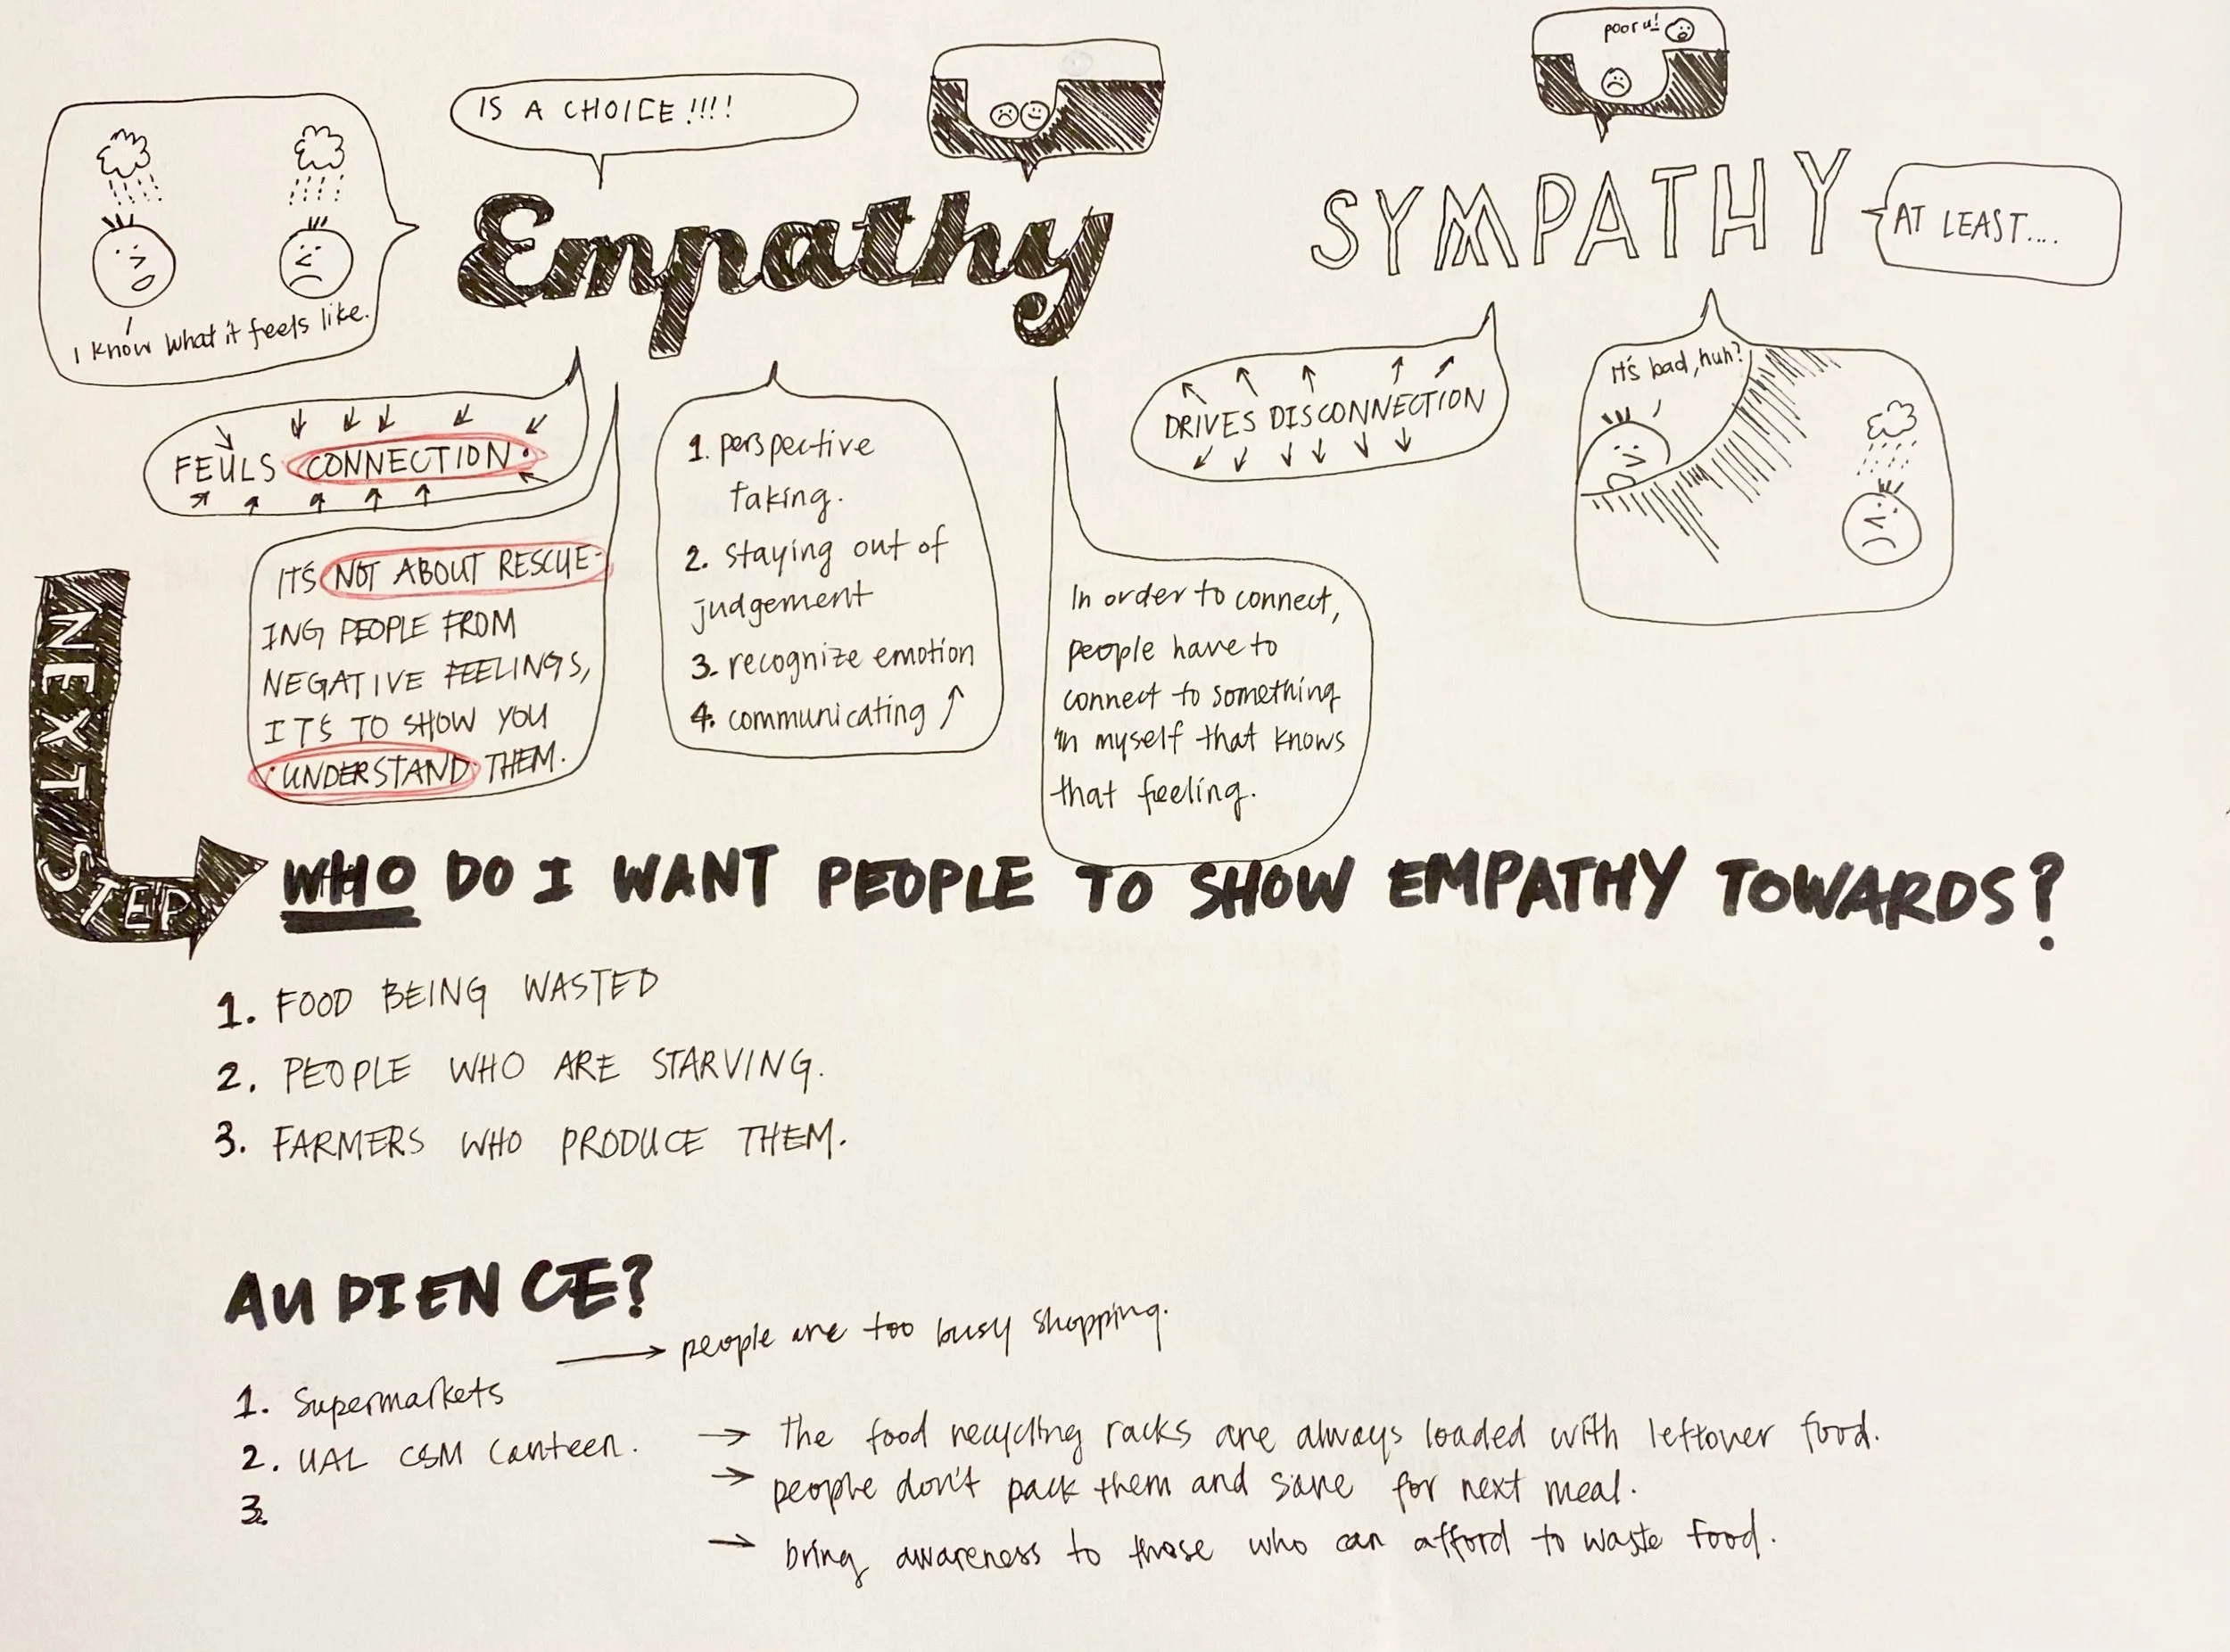 poor u!
IS A CHOICE !!!!
Empathy
SYMPATHY
AT LEAST....
I know what it feels like.
FEULS CONNECTION.
IT'S NOT ABOUT RESCUE-
ING PEOPLE FROM
NEGATIVE FEELINGS,
IT'S TO SHOW YOU
UNDERSTAND THEM.
1. perspective
taking.
2. staying out of
judgement
3. recognize emotion
4. communicating ↑
In order to connect,
people have to
connect to something
in myself that knows
that feeling.
DRIVES DISCONNECTION
It's bad, huh?
NEXT STEP
WHO DO I WANT PEOPLE TO SHOW EMPATHY TOWARDS?
1. FOOD BEING WASTED
2. PEOPLE WHO ARE STARVING.
3. FARMERS WHO PRODUCE THEM.
AUDIENCE?
→ people are too busy shopping.
1. Supermarkets
2. UAL CSM Canteen.
3.
→ the food recycling racks are always loaded with leftover food.
→ people don't pack them and save for next meal.
→ bring awareness to those who can afford to waste food.